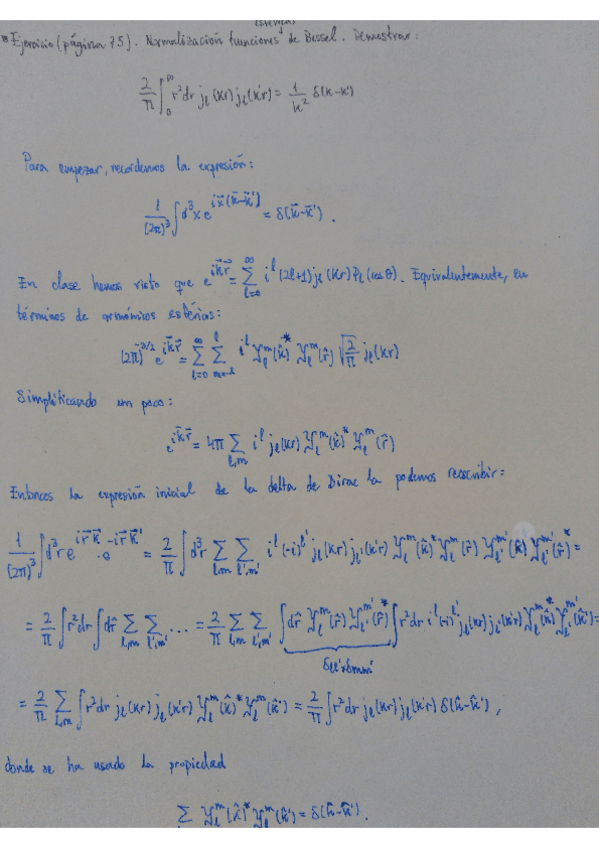 esféricas
* Ejercicio (página 75). Normalización funciones de Bessel. Demostrar:
2/π ∫₀^∞ r²dr jₗ(kr) jₗ(k'r) = 1/k² δ(k-k')
Para empezar, recordemos la expresión:
1/(2π)³ ∫d³x e^{i\vec{x}(\vec{k}-\vec{k}')} = δ(\vec{k}-\vec{k}').
En clase hemos visto que e^{i\vec{k}\vec{r}} = Σ_{l=0}^∞ i^l (2l+1) jₗ(kr) Pₗ(cos θ). Equivalentemente, en
términos de armónicos esféricos:
(2π)^{-3/2} e^{i\vec{k}\vec{r}} = Σ_{l=0}^∞ Σ_{m=-l}^l i^l Y_l^m(\hat{k})^* Y_l^m(\hat{r}) √(2/π) jₗ(kr)
Simplificando un poco:
e^{i\vec{k}\vec{r}} = 4π Σ_{l,m} i^l jₗ(kr) Y_l^m(\hat{k})^* Y_l^m(\hat{r})
Entonces la expresión inicial de la delta de Dirac la podemos reescribir:
1/(2π)³ ∫d³r e^{i\vec{r}\vec{k}} · e^{-i\vec{r}\vec{k}'} = 2/π ∫d³r Σ_{l,m} Σ_{l',m'} i^l (-i)^{l'} jₗ(kr) j_{l'}(k'r) Y_l^m(\hat{k})^* Y_l^m(\hat{r}) Y_{l'}^{m'}(\hat{k}) Y_{l'}^{m'}(\hat{r})^* =
= 2/π ∫r²dr ∫d\hat{r} Σ_{l,m} Σ_{l',m'} ... = 2/π Σ_{l,m} Σ_{l',m'} ∫d\hat{r} Y_l^m(\hat{r}) Y_{l'}^{m'}(\hat{r})^* ∫r²dr i^l (-i)^{l'} jₗ(kr) j_{l'}(k'r) Y_l^m(\hat{k})^* Y_{l'}^{m'}(\hat{k}') =
δll'δmm'
= 2/π Σ_{l,m} ∫r²dr jₗ(kr) jₗ(k'r) Y_l^m(\hat{k})^* Y_l^m(\hat{k}') = 2/π ∫r²dr jₗ(kr) jₗ(k'r) δ(\hat{k}-\hat{k}'),
donde se ha usado la propiedad
Σ Y_l^m(\hat{k})^* Y_l^m(\hat{k}') = δ(\hat{k}-\hat{k}').